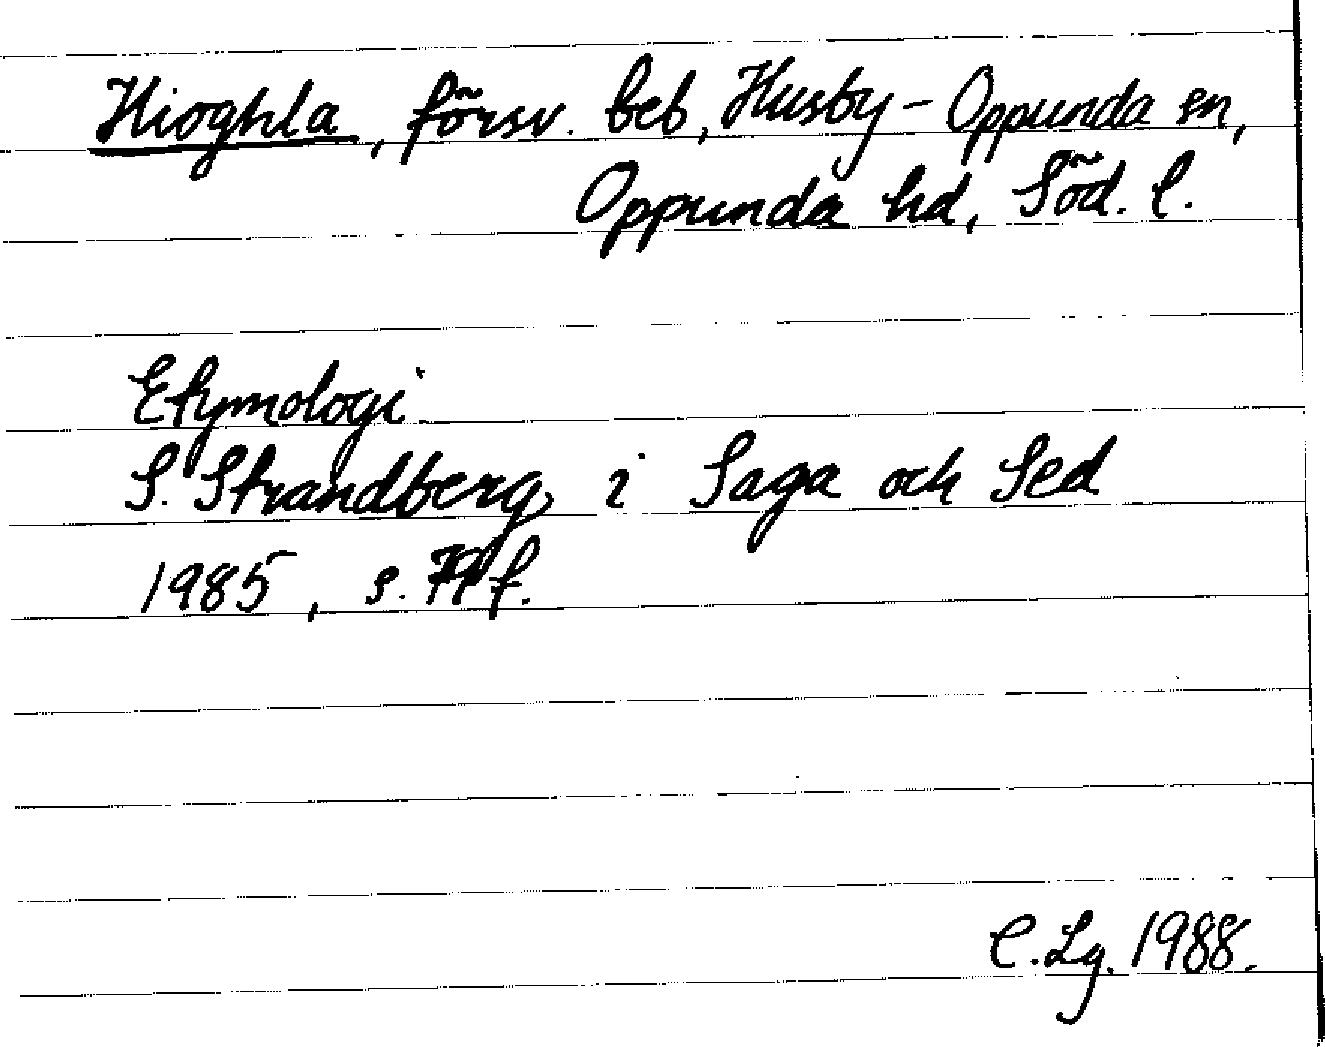 Hioghla, försv. beb, Husby-Oppunda sn,
Oppunda hd, Söd. l.
Etymologi
S. Strandberg i Saga och Sed
1985, s. f.
C. Lg. 1988.